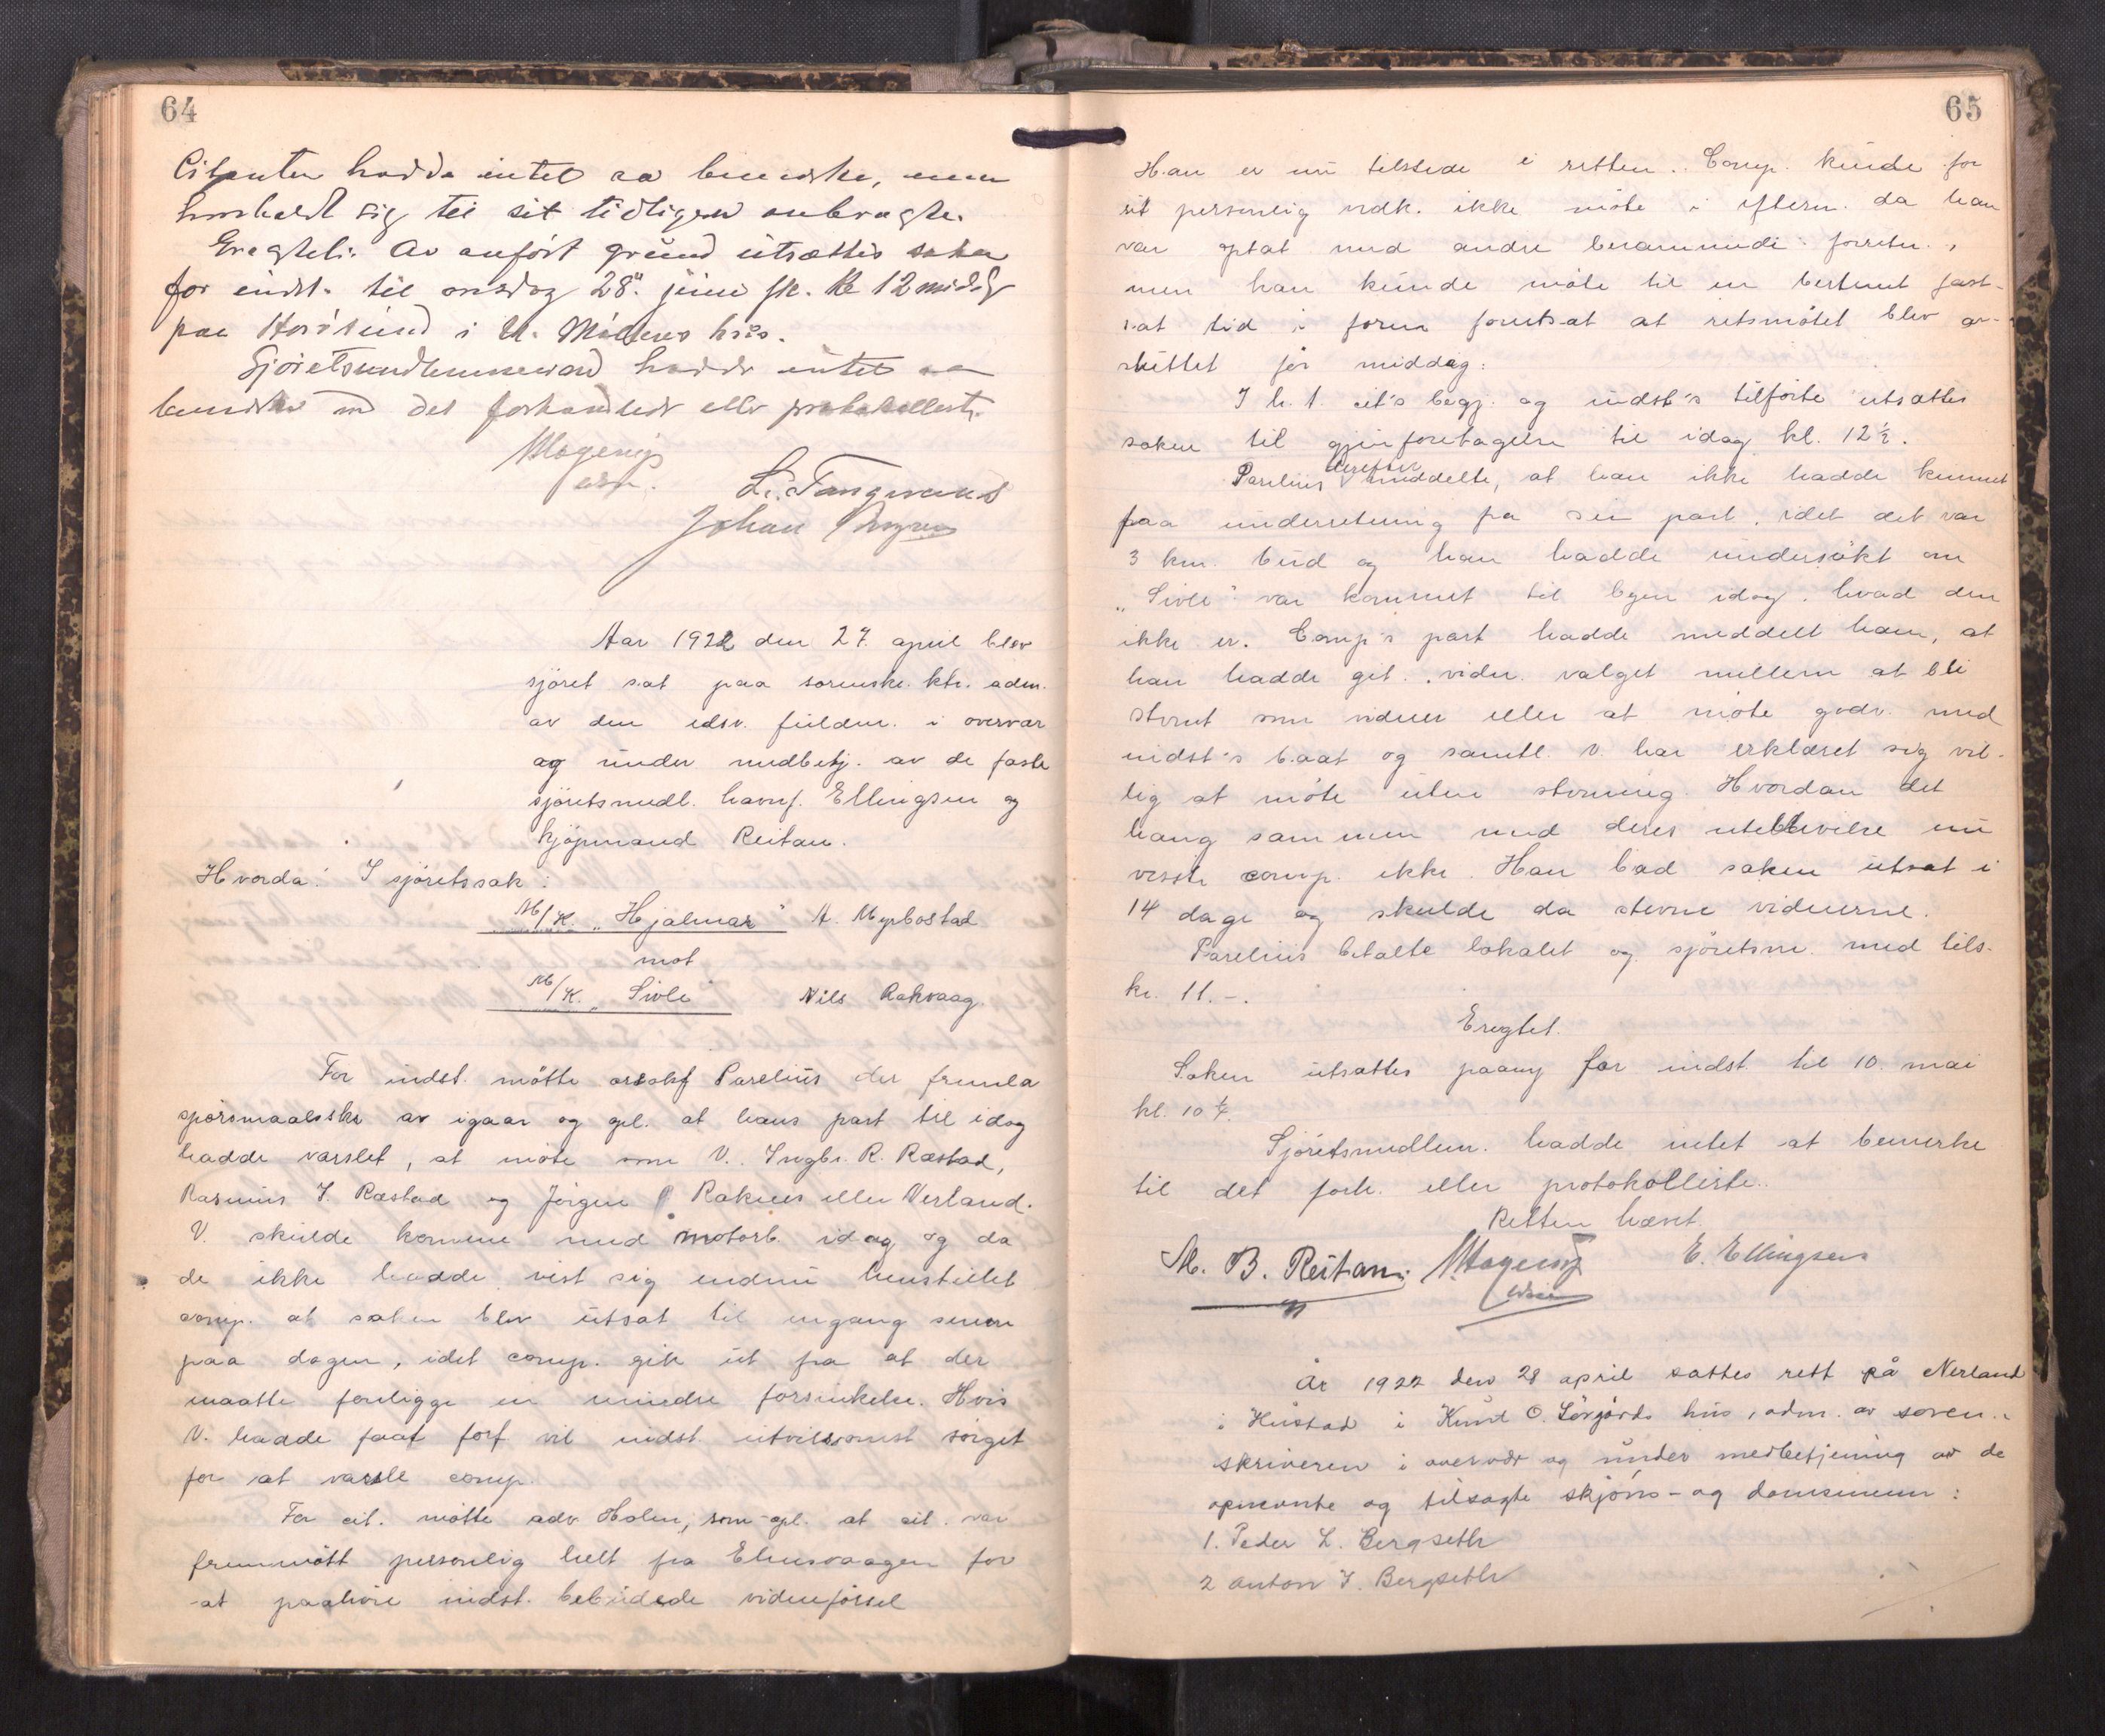 64
Citanten hadde intet aa bemerke, men
henholdt sig til sit tidligere anbragte.
Eragtet: Av anført grund utsættes saken
for indst. til onsdag 28. juni fk. kl 12 middag
paa Harøsund i hus.
Sjøretsmedlemmerne hadde intet aa
bemerke til det forhandlede eller protokollerte.
L. Tangeraas
Johan
Aar 1922 den 27. april blev
sjøret sat paa sorenskr. ktr. adm.
av den edsv. fuldm. i overvær
og under medbetj. av de faste
sjøretsmedl. havnf. Ellingsen og
kjøpmand Reitan.
Hvorda: I sjøretssak:
M/K. „Hjalmar" A. Myrbostad
mot
M/K. „Sivle" Nils Rakvaag.
For indst. møtte orsakf Parelius der fremla
spørsmaalsskr av igaar og opl. at hans part til idag
hadde varslet, at møte som V. Ingbr. R. Ræstad,
Rasmus I. Ræstad og Jørgen P. Raknes eller Nerland.
V. skulde komme med motorb. idag og da
de ikke hadde vist sig endnu henstillet
comp. at saken blev utsat til engang senere
paa dagen, idet comp. gik ut fra at der
maatte foreligge en mindre forsinkelse. Hvis
V. hadde faat forf vil indst utvilsomst sørget
for at varsle comp.
For cit. møtte adv Holm, som opl. at cit. var
fremmøtt personlig helt fra Elnesvaagen for
at paahøre indst. bebudede vidneførsel
65
Han er nu tilstede i retten. Comp. kunde for
sit personlig vedk. ikke møte i efterm. da han
var optat med andre berammede forretn.,
men han kunde møte til en bestemt fast-
sat tid i form forutsat at retsmøtet blev av-
sluttet før middag.
I h. t. cit's begj. og indst's tilførte utsættes
saken til gjenforetagelse til idag kl. 12½.
Parelius derefter meddelte, at han ikke hadde kunnet
faa underretning fra sin part, idet det var
3 km. bud og han hadde undersøkt om
„Sivle" var kommet til byen idag, hvad den
ikke er. Comp's part hadde meddelt ham, at
han hadde git vidn. valget mellem at bli
stevnt som vidner eller at møte godv. med
indst's baat og samtl. V. har erklæret sig vil-
lig at møte uten stevning. Hvordan det
hang sammen med deres uteblivelse nu
visste comp. ikke. Han bad saken utsat i
14 dage og skulde da stevne vidnerne.
Parelius betalte lokalet og sjøretsm. med tils.
kr. 11.-.
Eragtet.
Saken utsættes paany for indst. til 10. mai
kl. 10 ¼.
Sjøretsmedlem. hadde intet at bemerke
til det forh. eller protokollerte.
Retten hævet.
M. B. Reitan. E. Ellingsen
År 1922 den 28 april sattes rett på Nerland
i Hustad i Knut O. Sørgårds hus, adm. av soren-
skriveren i overvær og under medbetjening av de
opnevnte og tilsagte skjøns- og domsmenn:
1. Peder L. Bergseth
2 Anton I. Bergseth